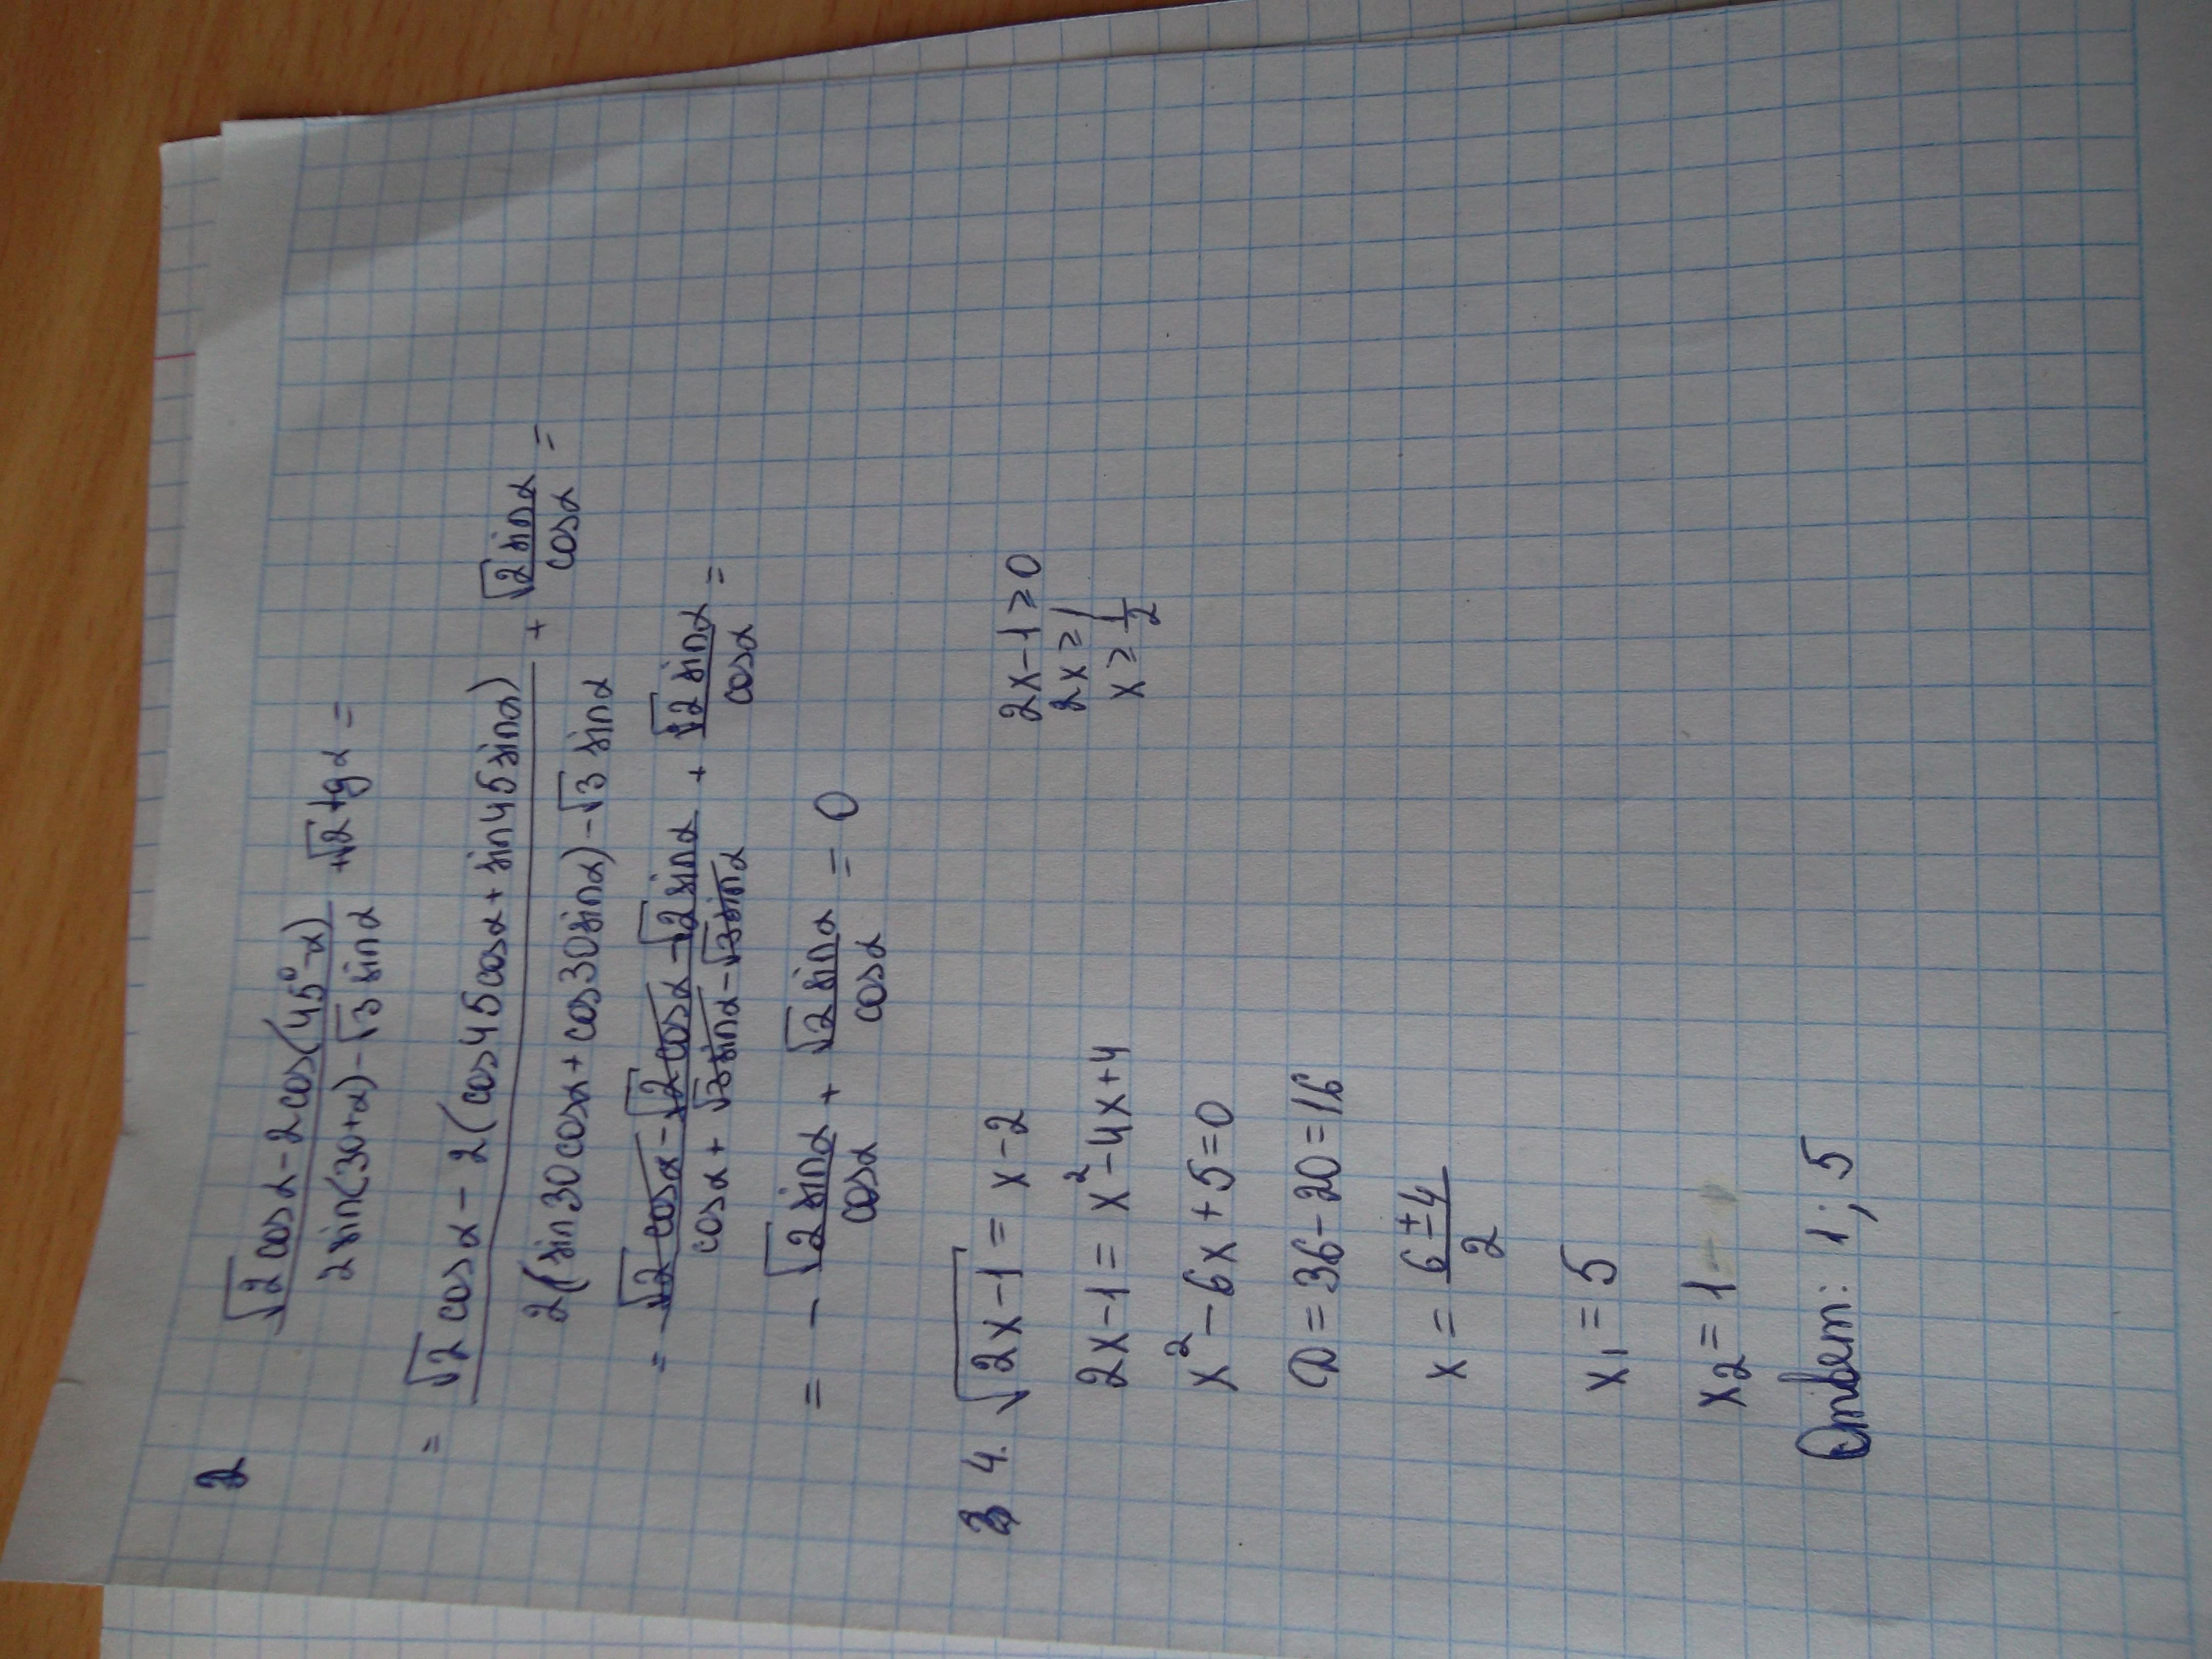 2
√2 cosα - 2cos(45°-α) / 2sin(30+α) - √3 sinα + √2 tgα =
= √2 cosα - 2(cos45cosα + sin45sinα) / 2(sin30cosα + cos30sinα) - √3 sinα + √2 sinα / cosα =
= √2 cosα - √2 cosα - √2 sinα / cosα + √3 sinα - √3 sinα + √2 sinα / cosα =
= - √2 sinα / cosα + √2 sinα / cosα = 0
3 4. √2x-1 = x-2 2x-1≥0
2x≥1
2x-1 = x² - 4x+4 x≥ 1/2
x² - 6x + 5 = 0
D = 36 - 20 = 16
x = 6 ± 4 / 2
x₁ = 5
x₂ = 1
Ответ: 1; 5